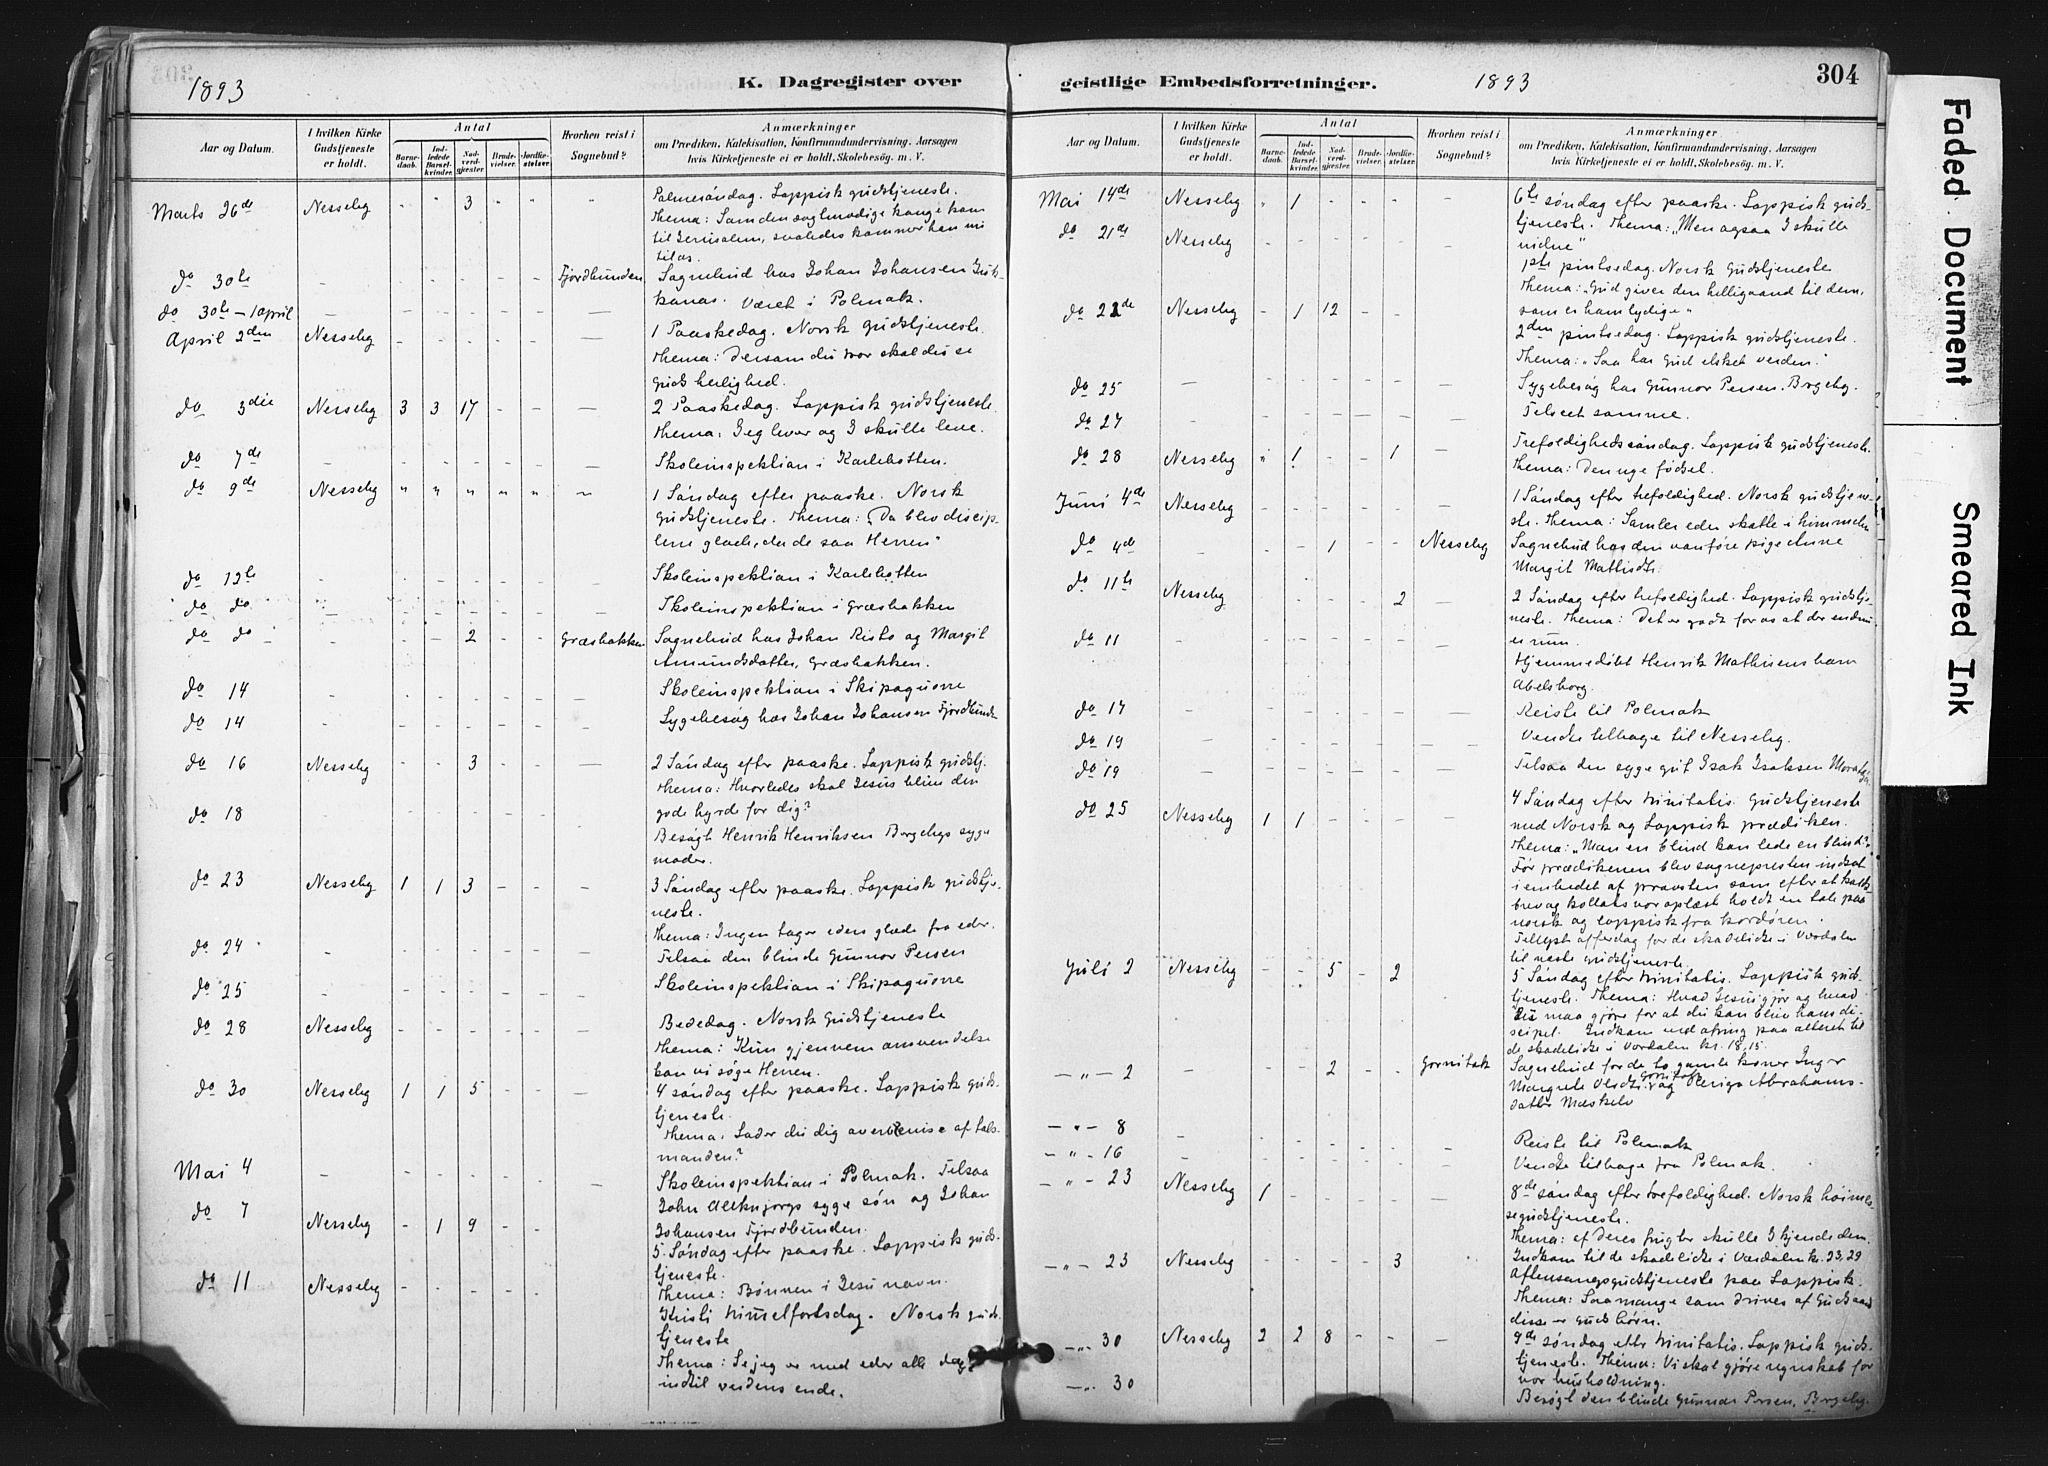 1893
K. Dagregister over
Aar og Datum.
I hvilken Kirke Gudstjeneste er holdt.
Antal
Barnedaab.
Indledede Barselkvinder.
Nadverdgjæster
Brudevielser.
Jordfæstelser.
Hvorhen reist i Sognebud?
Anmærkninger
om Prædiken, Katekisation, Konfirmandundervisning. Aarsagen
hvis Kirketjeneste ei er holdt, Skolebesøg. m. V.
Marts 26de Nesseby " " 3 " " " Palmesøndag. Lappisk gudstjeneste.
Thema: Som den sagtmodige konge kom
til Jerusalem, saaledes kommer han nu
til os.
do 30te – – – – – – Fjordbunden Sognebud hos Johan Johansen
Været i Polmak.
do 30te – 1 april
April 2den Nesseby – – – – – – 1 Paaskedag. Norsk gudstjeneste.
Thema: Dersom du tror skal du se
Guds herlighed.
do 3die Nesseby 3 3 17 – – – 2 Paaskedag. Lappisk gudstjeneste.
Thema: Jeg lever og I skulle leve.
do 7de – – – – – – – Skoleinspektion i Karlebotten.
do 9de Nesseby " " " " " " 1 Søndag efter paaske. Norsk
Gudstjeneste. Thema: „Da blev discip-
lene glade, da de saa Herren"
do 13te – – – – – – Skoleinspektion i Karlebotten
do do – – – – – – – Skoleinspektion i Græsbakken
do do – – – 2 – – Græsbakken Sognebud hos Johan Risto og Margit
Amundsdatter, Græsbakken.
do 14 – – – – – – – Skoleinspektion i Skipaguovre
do 14 – – – – – – – Sygebesøg hos Johan Johansen Fjordbunden
do 16 Nesseby – – 3 – – – 2 Søndag efter paaske. Lappisk gudstj.
Thema: Hvorledes skal Jesus blive den
gode hyrde for dig?
do 18 – – – – – –
Besøgt Henrik Henriksen Bergebys syge
moder.
do 23 Nesseby 1 1 3 – – – 3 Søndag efter paaske. Lappisk gudstje-
neste.
Thema: Ingen tager eders glæde fra eder.
do 24 – – – – – – – Tilsaa den blinde Gunnor Persen
do 25 – – – – – – – Skoleinspektion i Skipaguovre
do 28 Nesseby – – – – – – Bededag. Norsk Gudstjeneste
Thema: Kun gjennem omvendelse
kan vi søge Herren.
do 30 Nesseby 1 1 5 – – – 4 søndag efter paaske. Lappisk guds-
tjeneste.
Thema: Lader du dig overbevise af tals-
manden?
Mai 4 – – – – – – – Skoleinspektion i Polmak. Tilsaa
John syge søn og Johan
Johansen Fjordbunden.
do 7 Nesseby – 1 9 – –
5. Søndag efter paaske. Lappisk guds-
tjeneste.
Thema: Bønnen i Jesu navn.
do 11 Nesseby – – – – – –
Kristi himmelfartsdag. Norsk guds-
tjeneste
Thema: Se jeg er med eder alle dage
indtil verdens ende.
geistlige Embedsforretninger.
1893
304
Aar og Datum.
I hvilken Kirke Gudstjeneste er holdt.
Antal
Barnedaab.
Indledede Barselkvinder.
Nadverdgjæster
Brudevielser.
Jordfæstelser.
Hvorhen reist i Sognebud?
Anmærkninger
om Prædiken, Katekisation, Konfirmandundervisning. Aarsagen
hvis Kirketjeneste ei er holdt, Skolebesøg. m. V.
Mai 14de Nesseby " 1 – – – – 6te søndag efter paaske. Lappisk guds-
tjeneste. Thema: „Men ogsaa I skulle
vidne"
do 21de Nesseby – – – – – –
1ste pintsedag. Norsk Gudstjeneste
Thema: „Gud giver den helligaand til dem,
som er ham lydige"
do 22de Nesseby – 1 12 – –
2den pintsedag. Lappisk gudstjeneste.
Thema: „Saa har Gud elsket verden."
do 25 – – – – – – – Sygebesøg hos Gunnor Persen. Bergeby.
do 27 – – – – – – – Tilseet samme.
do 28 Nesseby " 1 – – 1 – Trefoldighedssøndag. Lappisk gudstjeneste.
Thema: Den nye fødsel.
Juni 4de Nesseby – – – – – – 1 Søndag efter trefoldighed. Norsk gudstjene-
ste. Thema: Samler eder skatte i himmelen
do 4de – – – 1 – – Nesseby Sognebud hos den vanføre pige Anne
Margit Mathisdtr.
do 11te Nesseby – – – – 2 – 2 Søndag efter trefoldighed. Lappisk gudstje-
neste. Thema: Det er godt for os at der endnu
er rum.
do 11 – – – – – – –
Hjemmedøbt Henrik Mathisens barn
Abelsborg.
do 17 – – – – – – – Reiste til Polmak
do 19 – – – – – – – Vendte tilbage til Nesseby.
do 19 – – – – – – – Tilsaa den syge gut Isak Isaksen
do 25 Nesseby 1 1 – – – – 4 Søndag efter trinitatis. Gudstjeneste
med Norsk og Lappisk prædiken.
Thema: „Man en blind kan lede en blind?"
Før prædikenen blev sognepresten indsat
i embedet af provsten som efter at kaldsbrev og kollats var oplæst holdt en tale paa
norsk og lappisk fra kordøren.
Tillyst offerdag for de skadelidte i Værdalen
til næste gudstjeneste.
Juli 2 Nesseby – – 5 – 2 5 Søndag efter trinitatis. Lappisk guds-
tjeneste. Thema: Hvad Jesus gjør og hvad
du maa gjøre for at du kan blive hans di-
scipel. Indkom ved ofring paa alteret til
de skadelidte i Værdalen kr. 18,15.
– " – 2 2 – – Gornitak Sognebud for de to gamle koner Inger
Margrete Gornitak og Abrahams-
datter Mæskelv
– " – 8 – – – – – – – Reiste til Polmak
– " – 16 – – – – – – – Vendte tilbage fra Polmak.
– " – 23 Nesseby 1 – – – – – 8de søndag efter trefoldighed. Norsk høimes-
segudstjeneste.
Thema: af deres frugter skulle I kjende dem.
Indkom til de skadelidte i Værdalen kr. 23,29
– " – 23 Nesseby – – – – 3
Aftensangsgudstjeneste paa Lappisk.
Thema: Saamange som drives af Guds aand
disse er Guds børn.
– " – 30 Nesseby 2 2 8 – – – 9de søndag efter trinitatis. Lappisk guds-
tjeneste. Thema: Vi skal gjøre regnskab for
vor husholdning.
– " – 30
Besøgt den blinde Gunnor Persen, Bergeby.
Faded Document
Smeared Ink